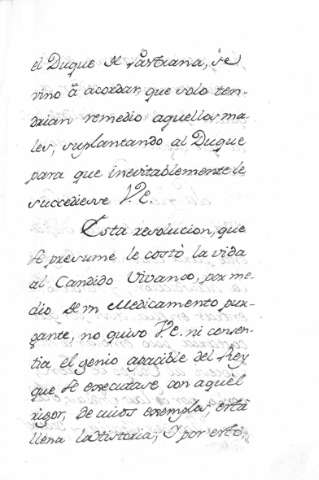 el Duque de Pastrana, se
vino à acordar, que solo ten-
drian remedio aquellos ma-
les, suplantando al Duque
para que inevitablemente le
succediesse V.E.
Esta revolucion, que
se presume le costò la vida
al Candido Vivanco, por me-
dio de un Medicamento pur-
gante, no quiso V.E. ni consen-
tia el genio apacible del Rey
que se executase con aquel
rigor, de cuios exemplos està
llena la Historia; Y por esto,